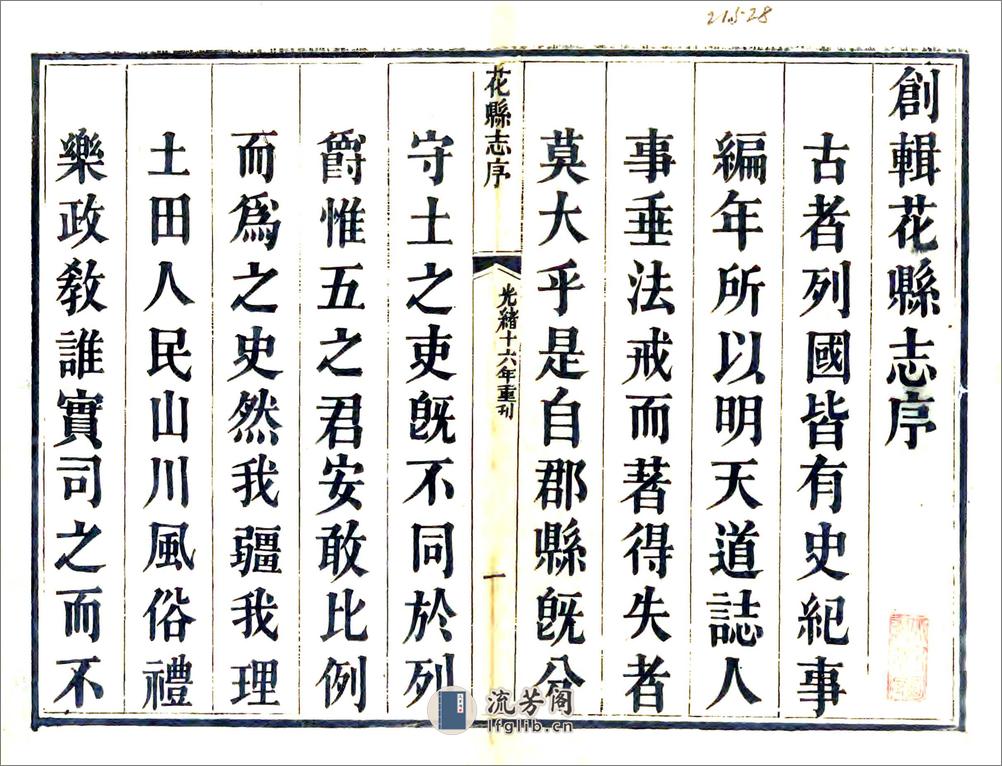 21.5-28
創輯花縣志序
古者列國皆有史紀事
編年所以明天道誌人
事垂法戒而著得失者
莫大乎是自郡縣旣分
花縣志序
光緒十六年重刊
一
守土之吏旣不同於列
爵惟五之君安敢比例
而爲之史然我疆我理
土田人民山川風俗禮
樂政敎誰實司之而不
流芳阁
lfglib.cn